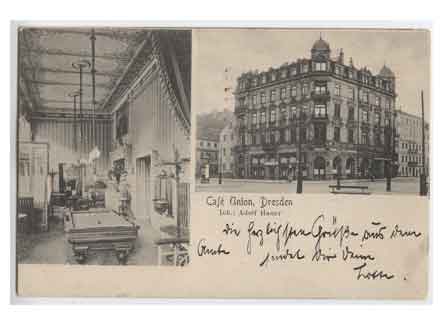 Café Union, Dresden
Inh.: Adolf Bauer
die herzlichsten Grüße aus dem
sendet Dir Deine
Lotte.